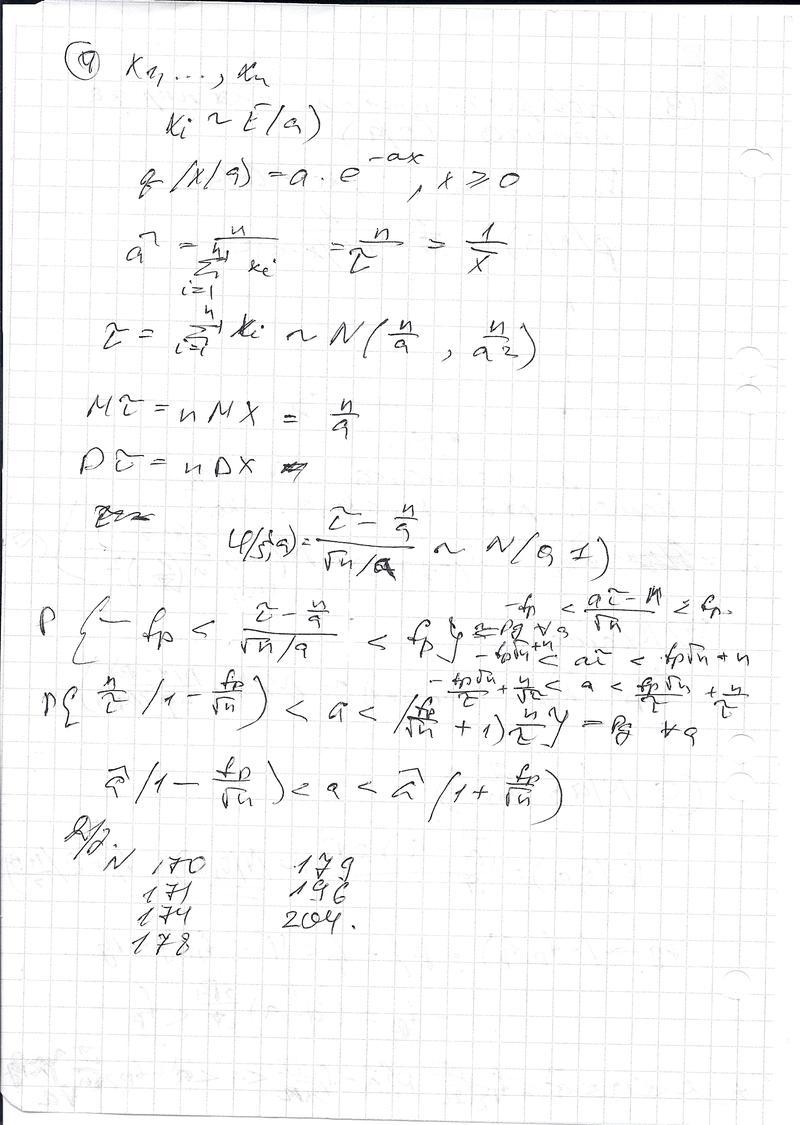 ④ x₁, ..., xₙ
xᵢ ~ E(a)
q(x|a) = a · e^{-ax}, x ≥ 0
â = n / Σ_{i=1}^{n} xᵢ = n/τ = 1/x̄
τ = Σ_{i=1}^{n} xᵢ ~ N(n/a, n/a²)
Mτ = nMX = n/a
Dτ = nDX =
= (τ - n/a) / (√n/a) ~ N(0, 1)
P{ -fp < (τ - n/a) / (√n/a) < fp } = Pg ∀a
-fp < (aτ - n)/√n ≤ fp
-fp√n + n < aτ < fp√n + n
-fp√n/τ + n/τ < a < fp√n/τ + n/τ
P{ n/τ (1 - fp/√n) < a < (fp/√n + 1) n/τ } = Pg ∀a
â (1 - fp/√n) < a < â (1 + fp/√n)
Д/з.
N 170 179
171 196
174 204.
178